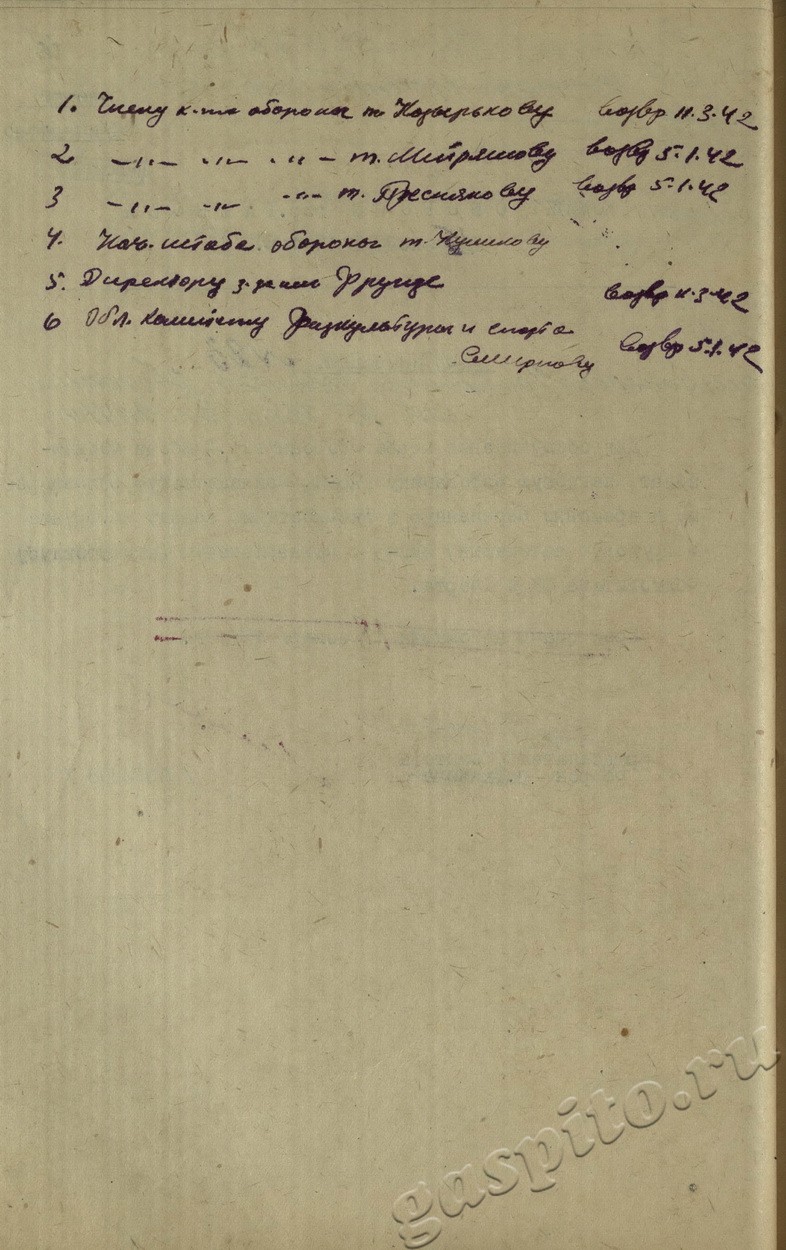 1. Члену к-та обороны т. Козырькову возвр 11.3.42
2 —„— —„— —„— т. Мейрамову возвр 5.1.42
3 —„— —„— —„— т. Преснякову возвр 5.1.42
4. Нач. штаба обороны т.
5. Директору з-да им Фрунзе возвр 11.3.42
6 Обл. комитету физкультуры и спорта
Смирнову возвр 5.1.42
gaspito.ru